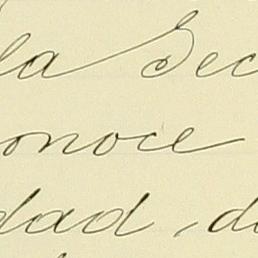 la Sec
onoce
dad, d